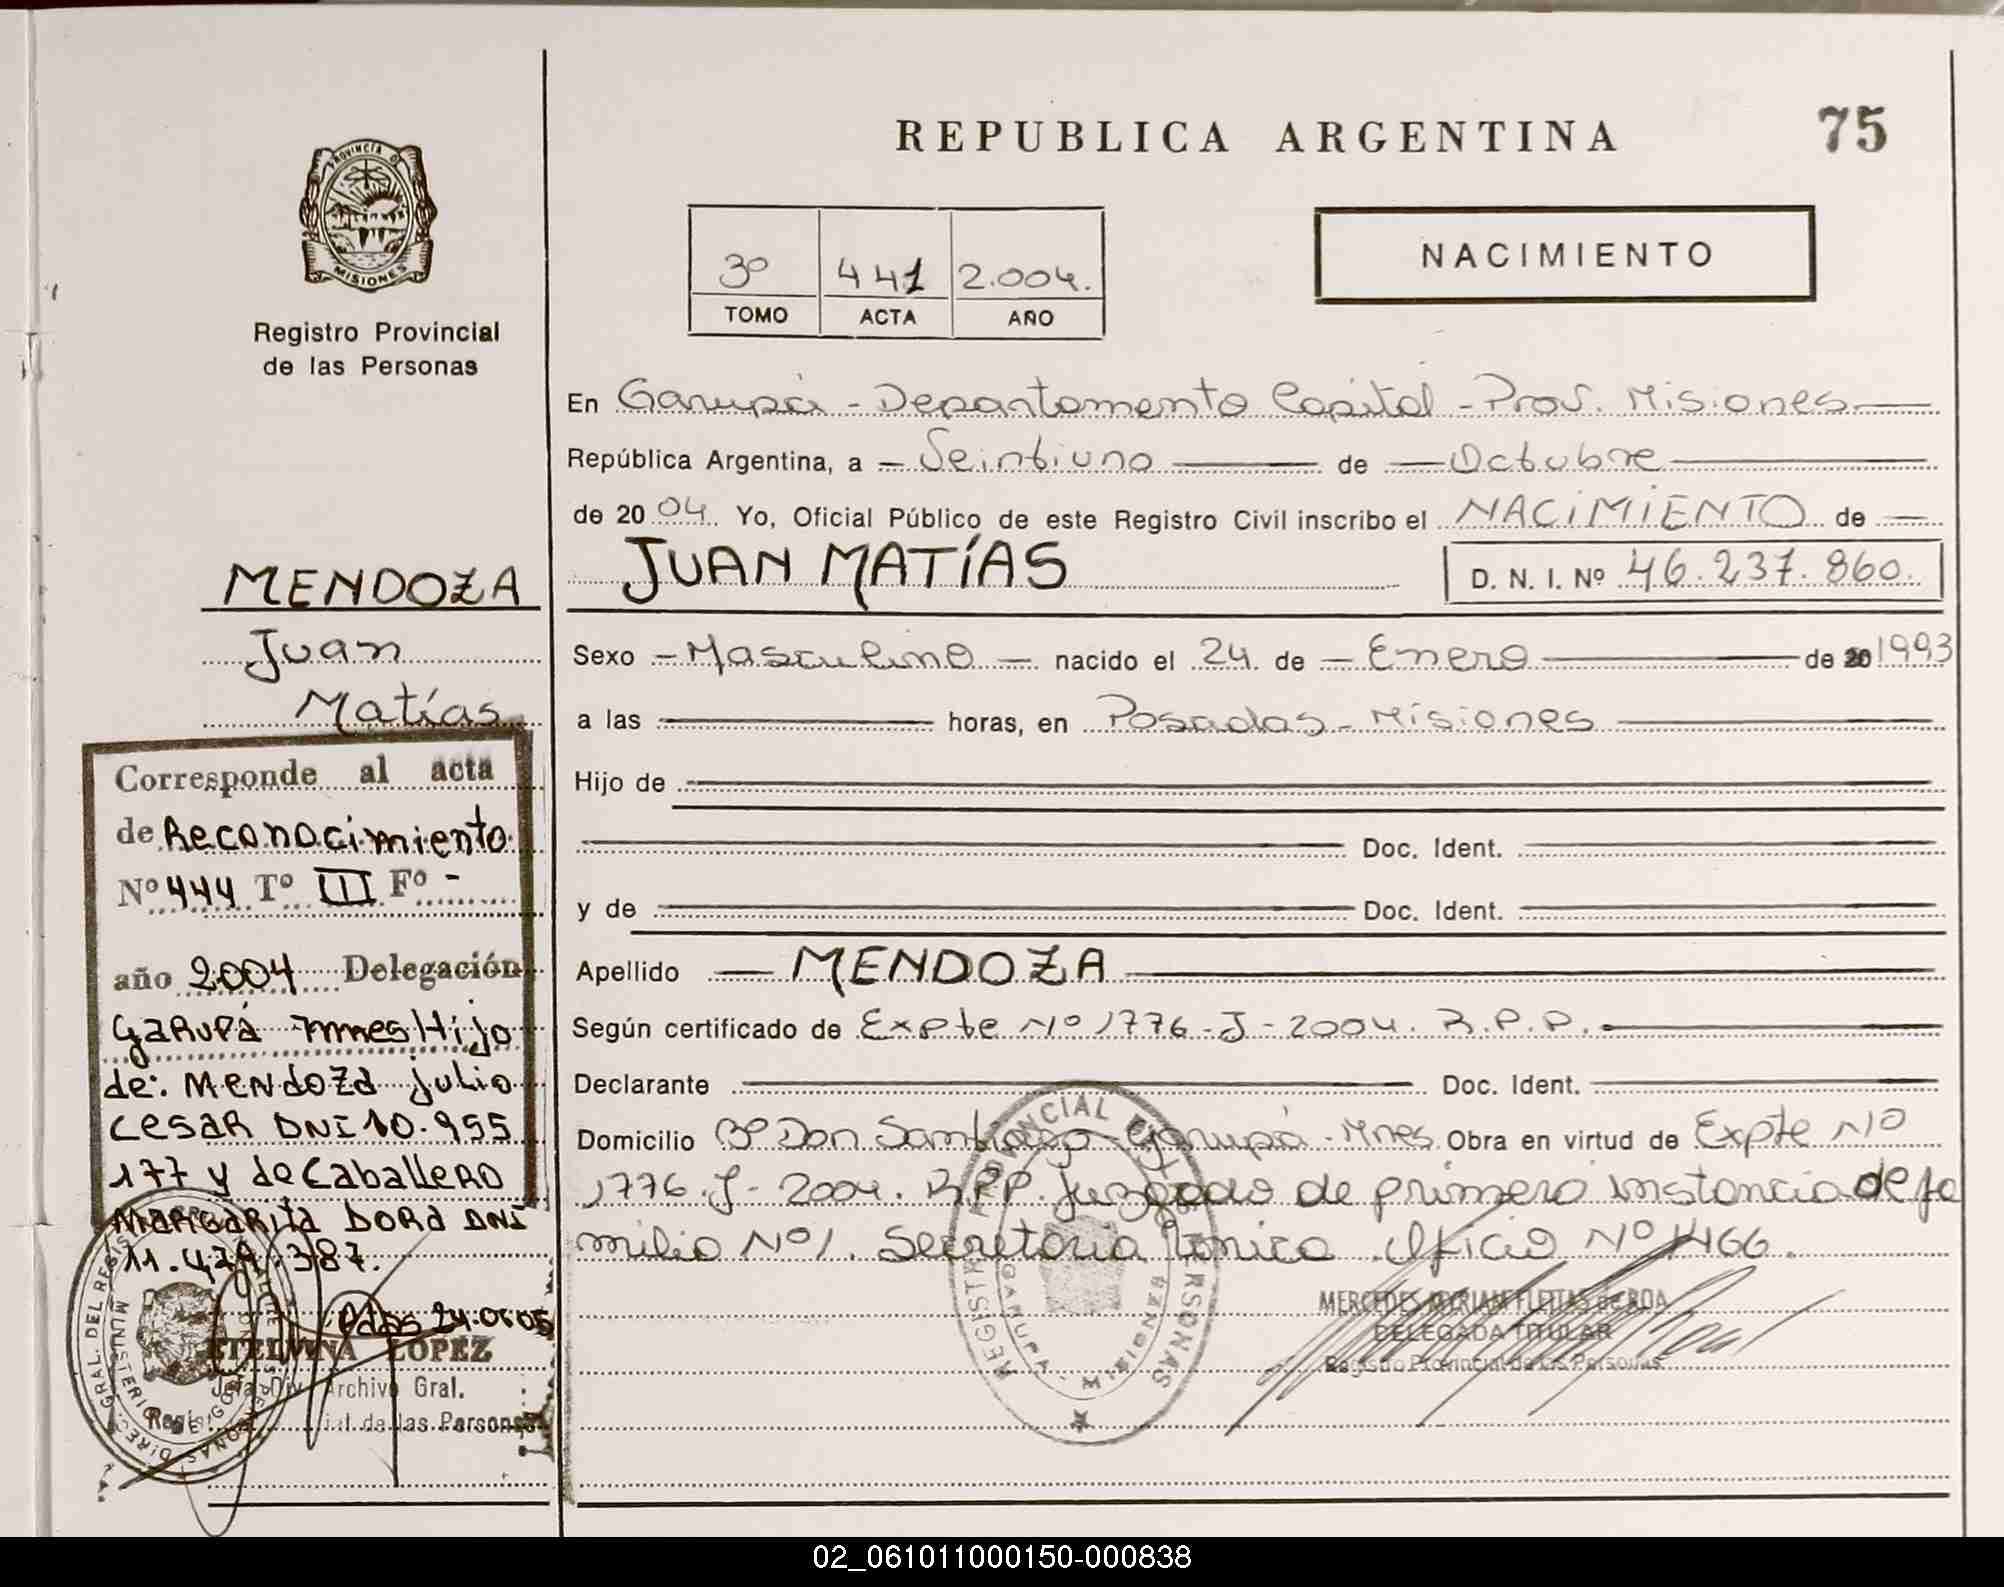 REPUBLICA ARGENTINA
75
PROVINCIA D
MISIONES
Registro Provincial
de las Personas
3º 441 2.004.
TOMO ACTA AÑO
NACIMIENTO
En Garupá - Departamento Capital - Prov. Misiones
República Argentina, a - Veintiuno de Octubre
de 2004. Yo, Oficial Público de este Registro Civil inscribo el NACIMIENTO de
JUAN MATÍAS
D. N. I. Nº 46.237.860.
Sexo - Masculino - nacido el 24 de - Enero de 20 1993
a las horas, en Posadas - Misiones
Hijo de
Doc. Ident.
y de Doc. Ident.
Apellido - MENDOZA
Según certificado de Expte Nº 1776-J-2004. R.P.P.
Declarante Doc. Ident.
Domicilio Bº Don Santiago - Garupá - Mnes. Obra en virtud de Expte Nº
1776-J-2004. R.P.P. Juzgado de primera instancia de fa
milia Nº1. Secretaría Única. Oficio Nº 1466.
MERCEDES MYRIAM FLEITAS de ROA
DELEGADA TITULAR
Registro Provincial de las Personas
REGISTR PROVINCIAL DE PERSONAS
GARUPA - MISIONES
MENDOZA
Juan
Matías
Corresponde al acta
de Reconocimiento
Nº 444 Tº III Fº -
año 2004 Delegación
Garupá Mnes Hijo
de: Mendoza Julio
Cesar DNI 10.955
177 y de Caballero
Margarita Dora DNI
11.479.387.
Pdas 24.06.05
ETELVINA LOPEZ
Jefa Div. Archivo Gral.
Regis ial de las Personas
DIREC. GRAL. DEL REGIS
MINISTERIO DE GO
02_061011000150-000838